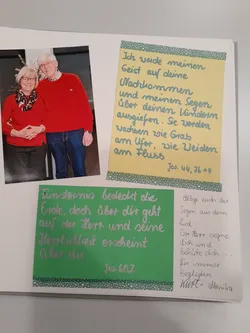 Ich werde meinen
Geist auf deine
Nachkommen
und meinen Segen
über deinen Kindern
ausgießen. Sie werden
wachsen wie Gras
am Ufer, wie Weiden
am Fluss
Jes. 44,
Finsternis bedeckt die
Erde, doch über dir geht
auf der Herr und seine
Herrlichkeit erscheint
über dir.
Jes 60,2
Möge euch der
Segen aus dem
Der Herr segne
dich und
behüte dich